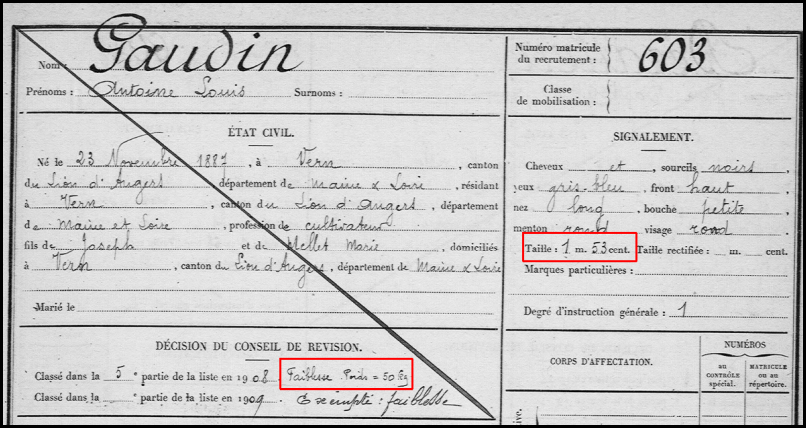 Nom : Gaudin
Prénoms : Antoine Louis Surnoms :
Numéro matricule
du recrutement : 603
Classe
de mobilisation :
ÉTAT CIVIL.
Né le 23 Novembre 1887, à Vern, canton
du Lion d'Angers, département de Maine & Loire, résidant
à Vern, canton du Lion d'Angers, département
de Maine et Loire, profession de cultivateur
fils de Joseph et de Mellet Marie, domiciliés
à Vern, canton du Lion d'Angers, département de Maine & Loire
Marié le
SIGNALEMENT.
Cheveux et, sourcils noirs
yeux gris-bleu, front haut
nez long, bouche petite
menton rond visage rond
Taille : 1 m. 53 cent. Taille rectifiée : m. cent.
Marques particulières :
Degré d'instruction générale : 1
DÉCISION DU CONSEIL DE REVISION.
Classé dans la 5e partie de la liste en 1908 Faiblesse Poids = 50 kg
Classé dans la e partie de la liste en 1909 Exempté : faiblesse
CORPS D'AFFECTATION.
NUMÉROS
au
CONTRÔLE
spécial.
MATRICULE
ou au
répertoire.